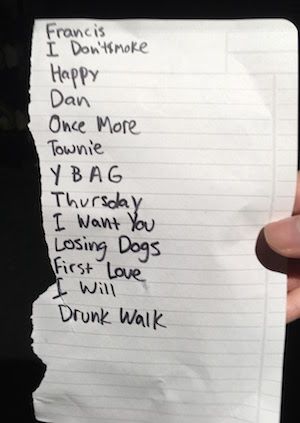 Francis
I Don'tsmoke
Happy
Dan
Once More
Townie
Y B A G
Thursday
I Want You
Losing Dogs
First Love
I Will
Drunk Walk